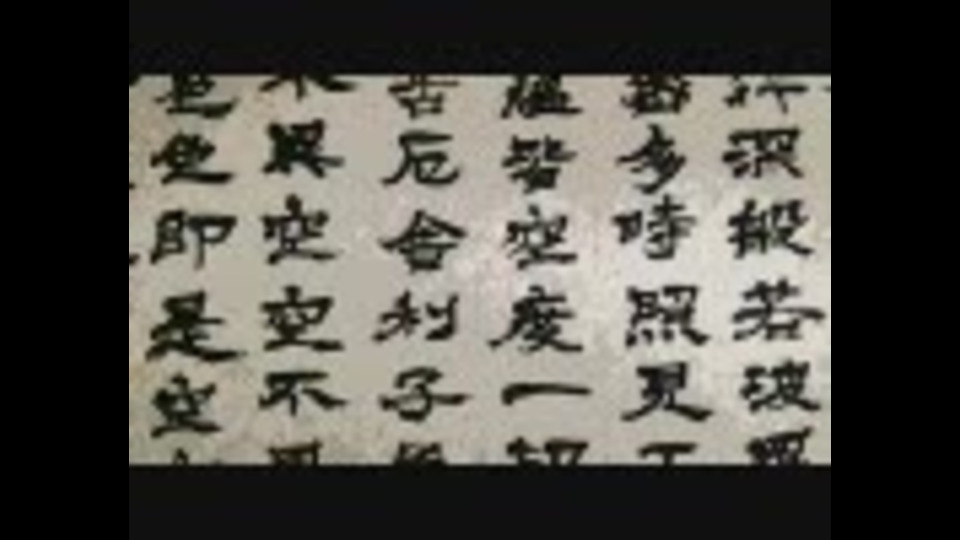 行深般若波羅
多時照見五
蘊皆空度一切
苦厄舍利子
不異空空不異
色色即是空